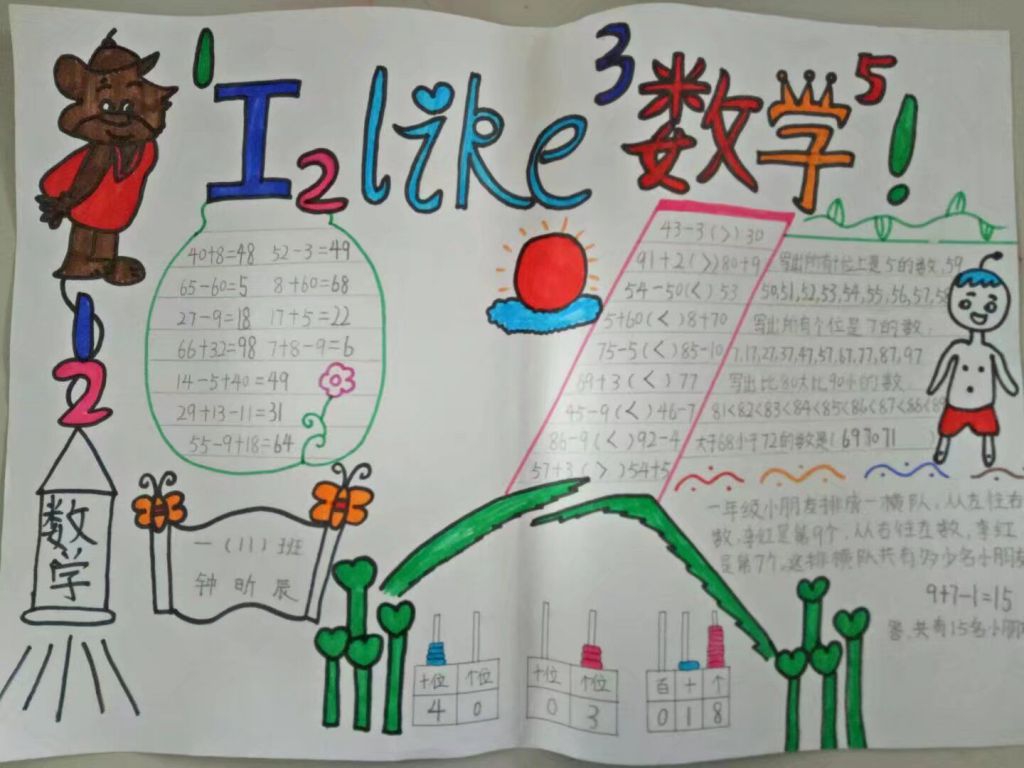 1 I 2 like 3 数学 5 !
1
2
数学
40+8=48 52-3=49
65-60=5 8+60=68
27-9=18 17+5=22
66+32=98 7+8-9=6
14-5+40=49
29+13-11=31
55-9+18=64
一(11)班
钟昕辰
43-3(>)30
91+2(>)80+9
54-50(<)53
5+60(<)8+70
75-5(<)85-10
69+3(<)77
45-9(<)46-7
86-9(<)92-4
57+3(>)54+5
写出所有十位上是5的数,59
50,51,52,53,54,55,56,57,58
写出所有个位是7的数:
7,17,27,37,47,57,67,77,87,97
写出比80大比90小的数
81<82<83<84<85<86<87<88<89
大于68小于72的数是(697071)
一年级小朋友排成一横队,从左往右
数,李红是第9个,从右往左数,李红
是第7个,这排横队共有多少名小朋友
9+7-1=15
答,共有15名小朋
十位 个位
4 0
十位 个位
0 3
百 十 个
0 1 8